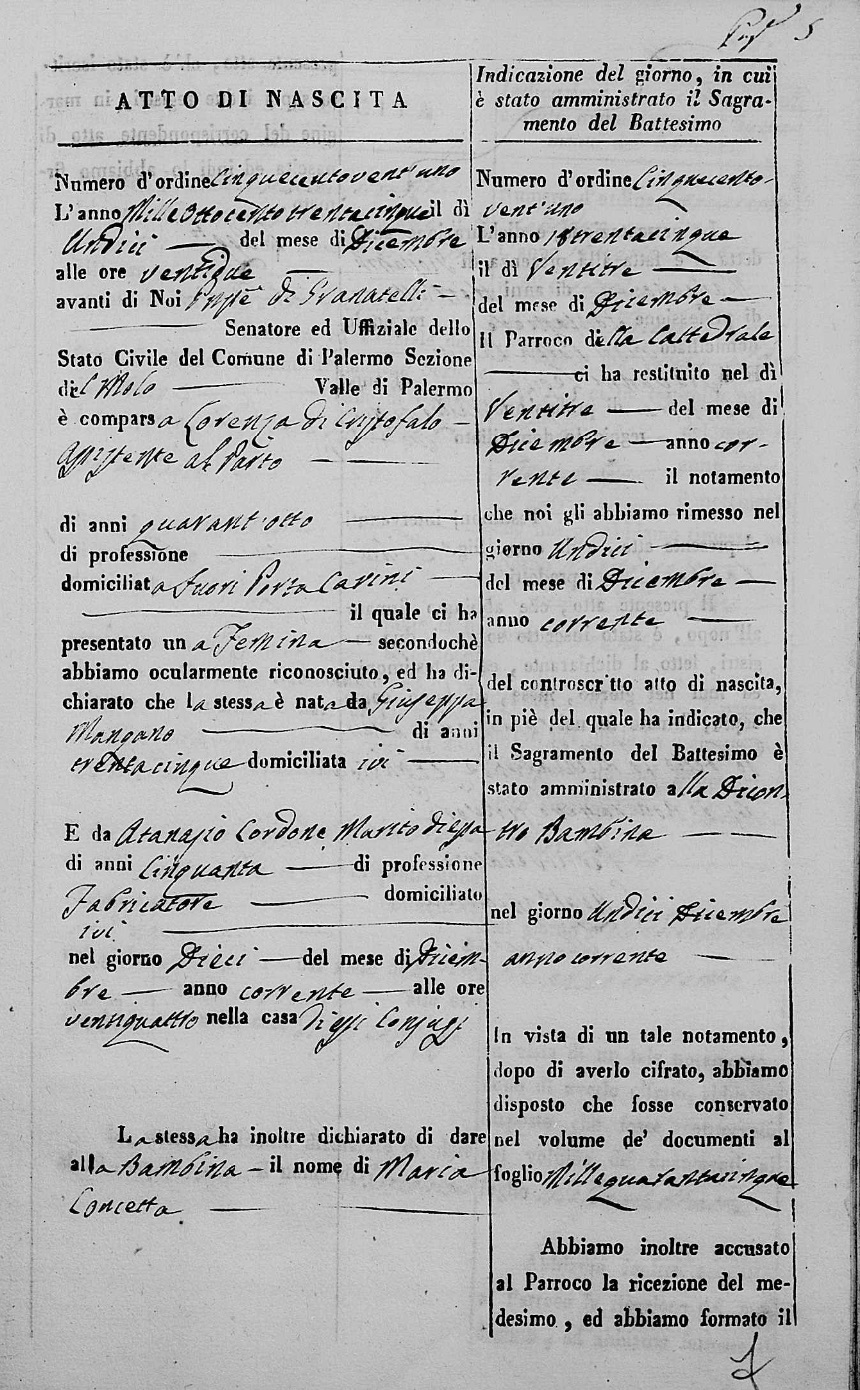 5
ATTO DI NASCITA
Numero d'ordine Cinquecentovent'uno
L'anno Mille Ottocento trentacinque il dì
Undici del mese di Dicembre
alle ore ventidue
avanti di Noi di Granatelli
Senatore ed Uffiziale dello
Stato Civile del Comune di Palermo Sezione
del Molo Valle di Palermo
è comparsa Lorenza di Cristofalo
assistente al Parto
di anni quarant'otto
di professione
domiciliata fuori Porta Carini
il quale ci ha
presentato una Femina secondochè
abbiamo ocularmente riconosciuto, ed ha di-
chiarato che la stessa è nata da Giuseppa
Mangano di anni
trentacinque domiciliata ivi
E da Atanasio Cordone Marito di essa
di anni Cinquanta di professione
Fabricatore domiciliato
ivi
nel giorno Dieci del mese di Dicem-
bre anno corrente alle ore
ventiquattro nella casa di essi Conjugi
La stessa ha inoltre dichiarato di dare
alla Bambina il nome di Maria
Concetta
Indicazione del giorno, in cui
è stato amministrato il Sagra-
mento del Battesimo
Numero d'ordine Cinquecento-
vent'uno
L'anno 18trentacinque
il dì Ventitre
del mese di Dicembre
Il Parroco della Cattedrale
ci ha restituito nel dì
Ventitre del mese di
Dicembre anno cor-
rente il notamento
che noi gli abbiamo rimesso nel
giorno Undici
del mese di Dicembre
anno corrente
del controscritto atto di nascita,
in piè del quale ha indicato, che
il Sagramento del Battesimo è
stato amministrato alla Dicon-
tro Bambina
nel giorno Undici Dicembre
anno corrente
In vista di un tale notamento,
dopo di averlo cifrato, abbiamo
disposto che fosse conservato
nel volume de' documenti al
foglio Millequarantacinque
Abbiamo inoltre accusato
al Parroco la ricezione del me-
desimo, ed abbiamo formato il